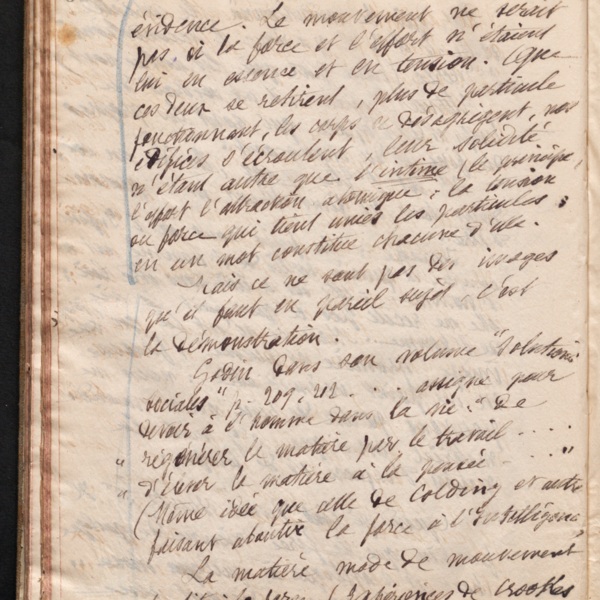 évidence. Le mouvement ne serait
pas, si la force et l'effort n'étaient
lui en essence et en tension. Que
ces deux se retirent, plus de particule
fonctionnant, les corps se désagrègent, nos
édifices s'écroulent, leur solidité
n'étant autre que l'intime (le principe,
l'effort l'attraction atomique; la tension
ou force qui tient unies les particules;
en un mot constitue chacune d'elle.
Mais ce ne sont pas des images
qu'il faut en pareil sujet, c'est
la démonstration.
Godin dans son volume "Solutions
sociales" p. 209, 212 . . . assigne pour
devoir à l'homme dans la vie: "De
"régénérer la matière par le travail . . . .
"d'élever la matière à la pensée . . . "
(Même idée que celle de Colding et autres
faisant aboutir la force à l'intelligence
La matière mode de mouvement
de Crookes